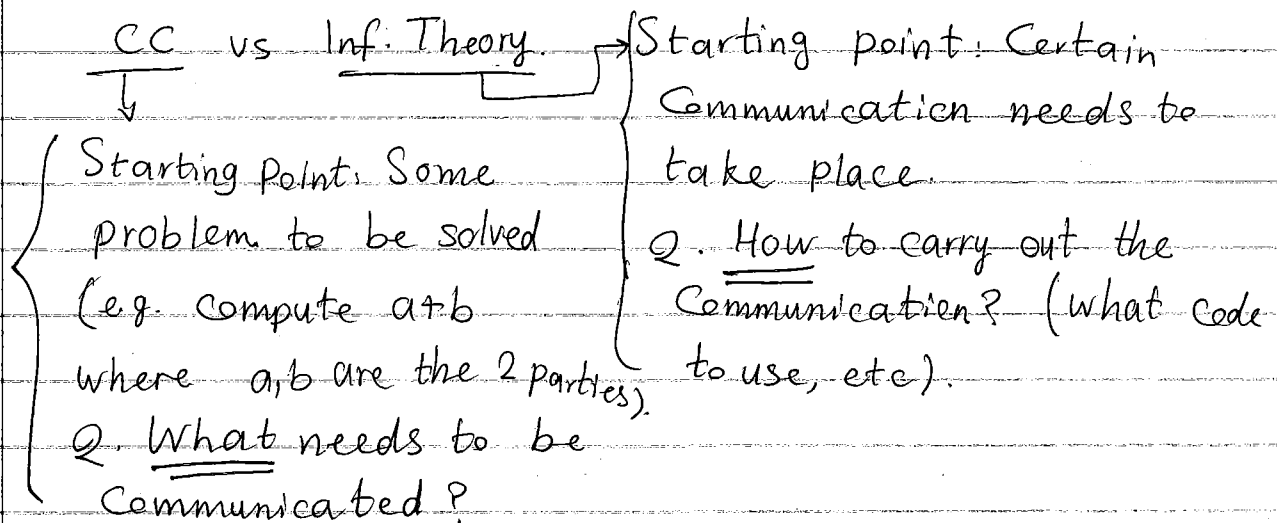 CC vs Inf. Theory.
Starting Point: Some
problem to be solved
(e.g. compute a+b
where a,b are the 2 parties).
Q. What needs to be
Communicated?
Starting point: Certain
Communication needs to
take place.
Q. How to carry out the
Communication? (What code
to use, etc).